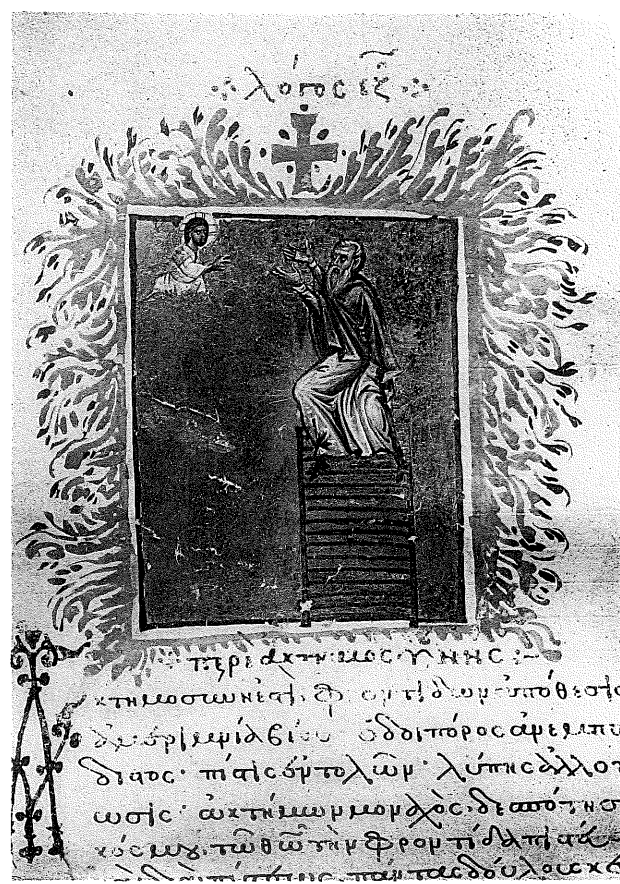 λόγος ιϛ
περὶ ἀκτημοσύνης:-
Ἀκτημοσύνη ἐστὶ, φροντίδων ἀπόθεσις
ἀμεριμνία βίου· ὁδοιπόρος ἀνεμπο
διστος· πίστις ἐντολῶν· λύπης ἀλλοτ
ωσις· ἀκτήμων μοναχὸς, δεσπότης
κόσμου. τῶ θῶ τὴν φροντίδα
πάντας δούλους κε